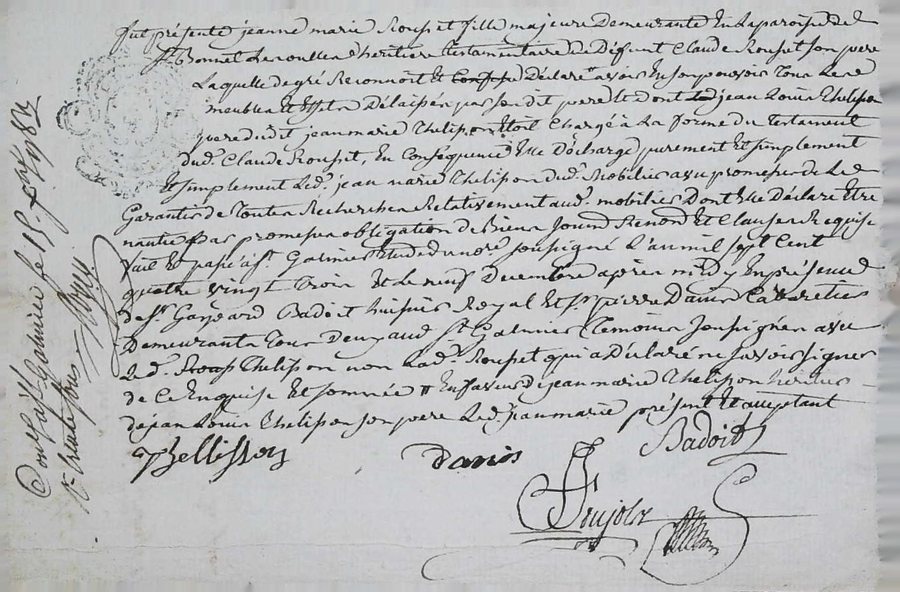 fut présente jeanne marie Rousset fille majeure Demeurante En La paroisse de
St Bonnet Les oulles heritiere testamentaire de Deffunt Claude Rousset son pere
Laquelle de gré Reconnoit Et Confesse Declare avoir En son pouvoir Tous Les
meubles Et Effets Delaissés par son dit pere Et Dont jean Louis Thelisson
pere dudit jean marie Thelisson Etoit Chargé à La forme du Testament
dud. Claude Rousset, En Conséquence Elle Décharge purement Et simplement
Et simplement Led. jean marie Thelisson dud. Mobilier avec promesse de Le
Garantir de Toutes Recherches Relativement aud. mobilier Dont Elle Declare Etre
nantie par promesse obligation de Biens Soumo Renond Et Clauses Requise
fait Et passé à St Galmier Etude du nore soussigné L'an mil sept Cent
quatre vingt Trois Et Le neuf Decembre après midy En présence
de sr Gaspard Badoit huissier Royal Et sr pierre Danis Cabaretier
Demeurants Tous Deux aud. St Galmier Temoins soussignés avec
Led. Thelisson non Lad. Rousset qui a Declaré ne savoir signer
de Ce Enquise Et sommée En faveur de jean marie Thelisson heritier
de jean Louis Thelisson son pere Led. jean marie présent Et acceptant
Thellisson Danis Badoit
Poujolz
Conlé à St Galmier le 15 Xbre 1783